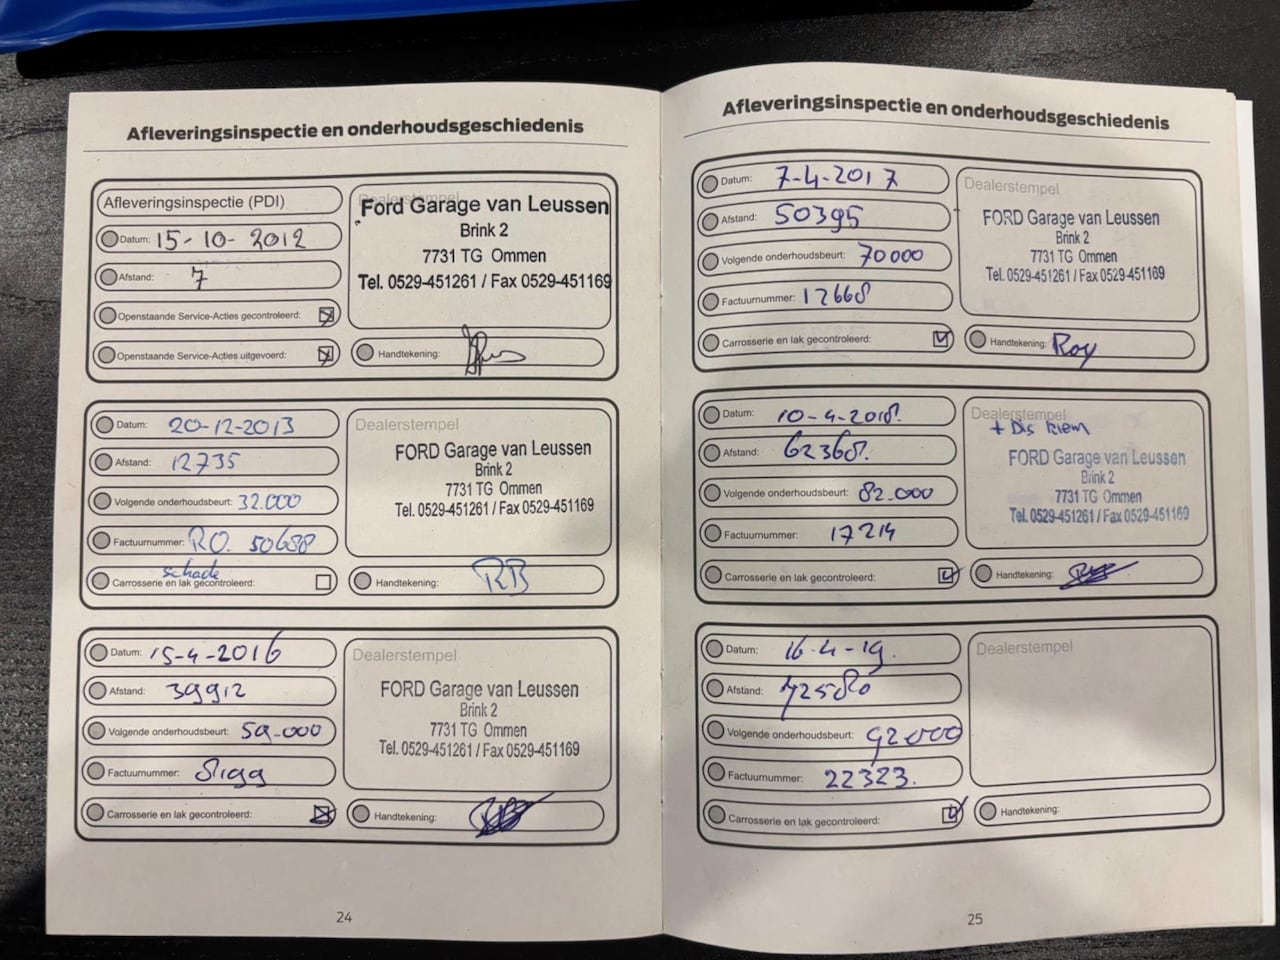 Afleveringsinspectie en onderhoudsgeschiedenis
Afleveringsinspectie (PDI)
Datum: 15-10-2012
Afstand: 7
Openstaande Service-Acties gecontroleerd:
Openstaande Service-Acties uitgevoerd:
Dealerstempel
Ford Garage van Leussen
Brink 2
7731 TG Ommen
Tel. 0529-451261 / Fax 0529-451169
Handtekening:
Datum: 20-12-2013
Afstand: 12735
Volgende onderhoudsbeurt: 32.000
Factuurnummer: RO. 50688
schade
Carrosserie en lak gecontroleerd:
Dealerstempel
FORD Garage van Leussen
Brink 2
7731 TG Ommen
Tel. 0529-451261 / Fax 0529-451169
Handtekening: RB
Datum: 15-4-2016
Afstand: 39912
Volgende onderhoudsbeurt: 59.000
Factuurnummer: 8199
Carrosserie en lak gecontroleerd:
Dealerstempel
FORD Garage van Leussen
Brink 2
7731 TG Ommen
Tel. 0529-451261 / Fax 0529-451169
Handtekening:
24
Afleveringsinspectie en onderhoudsgeschiedenis
Datum: 7-4-2017
Afstand: 50395
Volgende onderhoudsbeurt: 70000
Factuurnummer: 12668
Carrosserie en lak gecontroleerd:
Dealerstempel
FORD Garage van Leussen
Brink 2
7731 TG Ommen
Tel. 0529-451261 / Fax 0529-451169
Handtekening: Roy
Datum: 10-4-2018.
Afstand: 62368.
Volgende onderhoudsbeurt: 82.000
Factuurnummer: 17214
Carrosserie en lak gecontroleerd:
Dealerstempel
+ Dis riem
FORD Garage van Leussen
Brink 2
7731 TG Ommen
Tel. 0529-451261 / Fax 0529-451169
Handtekening:
Datum: 16-4-19.
Afstand: 72580
Volgende onderhoudsbeurt: 92000
Factuurnummer: 22323.
Carrosserie en lak gecontroleerd:
Dealerstempel
Handtekening:
25